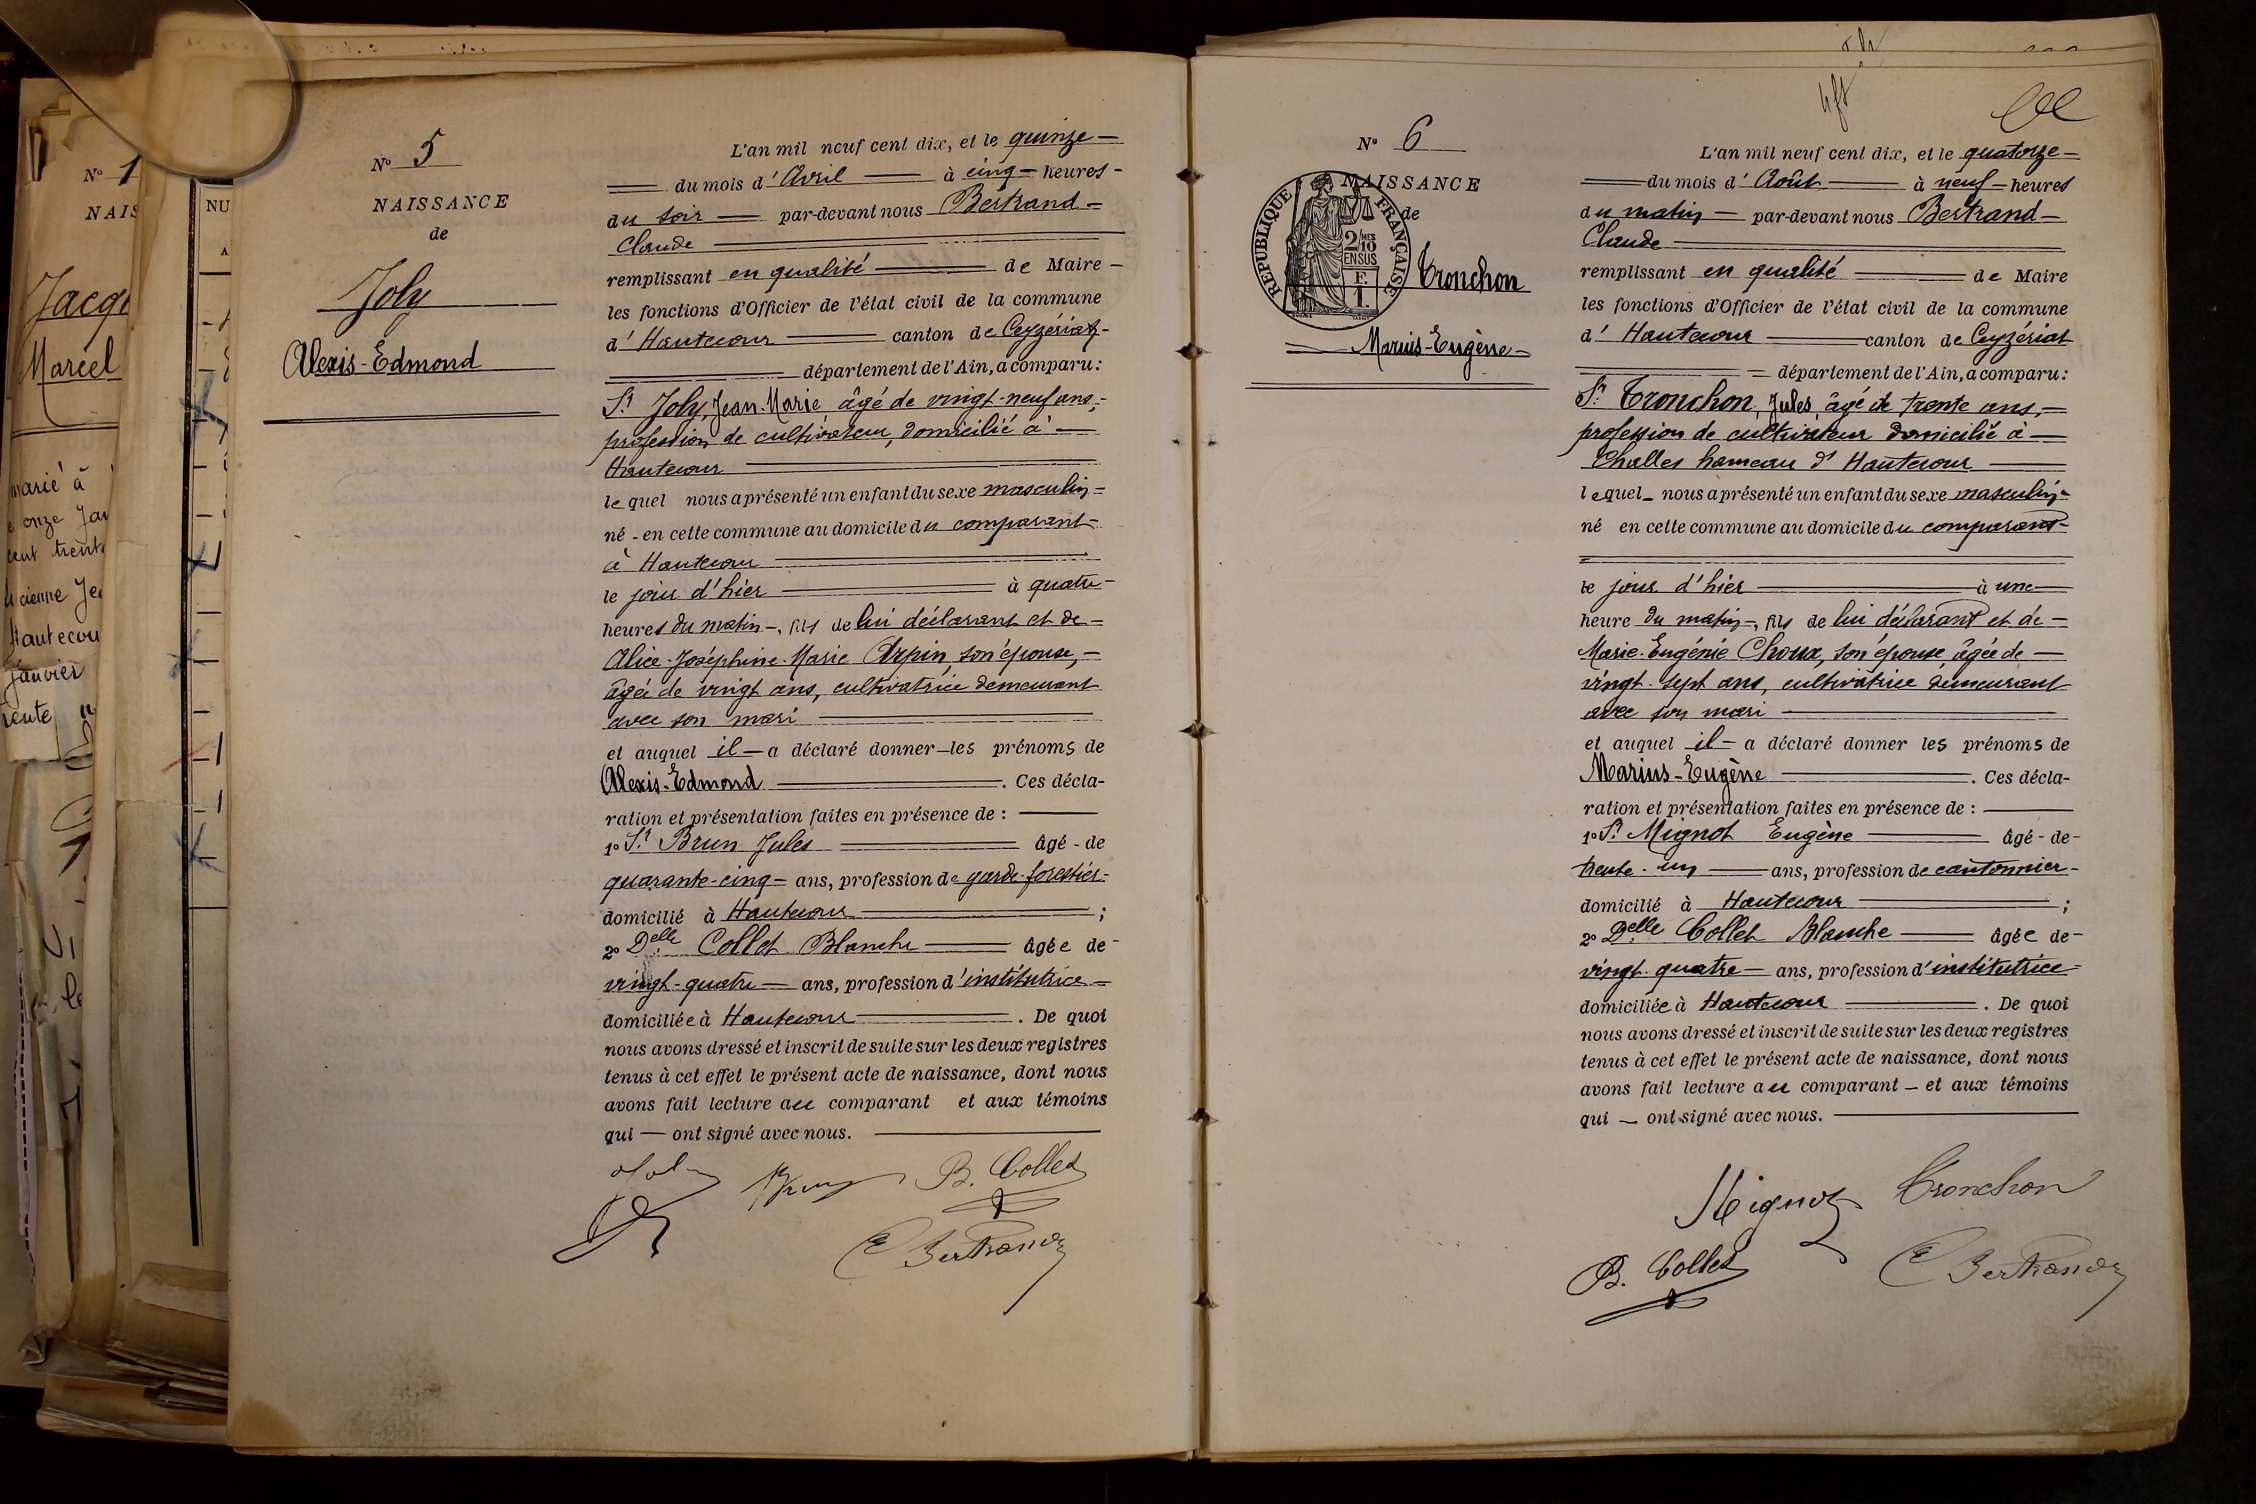 Nº 1
NAIS
Jacq
Marcel
marié à
e onze Jan
cent trente
Hautecou
janvier
trente
NU
A
Nº 5
NAISSANCE
de
Joly
Alexis-Edmond
L'an mil neuf cent dix, et le quinze
du mois d'Avril à cinq heures
du soir par-devant nous Bertrand
Claude
remplissant en qualité de Maire
les fonctions d'Officier de l'état civil de la commune
d'Hautecour canton de Ceyzériat
département de l'Ain, a comparu:
Sr Joly, Jean-Marie, âgé de vingt-neuf ans,
profession de cultivateur, domicilié à
Hautecour
lequel nous a présenté un enfant du sexe masculin
né en cette commune au domicile du comparant
à Hautecour
le jour d'hier à quatre
heures du matin, fils de lui déclarant et de
Alice-Joséphine-Marie Arpin, son épouse,
âgée de vingt ans, cultivatrice demeurant
avec son mari
et auquel il a déclaré donner les prénoms de
Alexis-Edmond. Ces décla-
ration et présentation faites en présence de :
1º Sr Brun Jules âgé de
quarante-cinq ans, profession de garde-forestier
domicilié à Hautecour ;
2º Delle Collet Blanche âgée de
vingt-quatre ans, profession d'institutrice
domiciliée à Hautecour. De quoi
nous avons dressé et inscrit de suite sur les deux registres
tenus à cet effet le présent acte de naissance, dont nous
avons fait lecture au comparant et aux témoins
qui ont signé avec nous.
Joly Brun B. Collet
C Bertrand
Nº 6
NAISSANCE
de
RÉPUBLIQUE FRANÇAISE
2/10 MES
EN SUS
F.
1.
Tronchon
Marius-Eugène
L'an mil neuf cent dix, et le quatorze
du mois d'Août à neuf heures
du matin par-devant nous Bertrand
Claude
remplissant en qualité de Maire
les fonctions d'Officier de l'état civil de la commune
d'Hautecour canton de Ceyzériat
département de l'Ain, a comparu:
Sr Tronchon, Jules, âgé de trente ans,
profession de cultivateur domicilié à
Challes hameau d'Hautecour
lequel nous a présenté un enfant du sexe masculin
né en cette commune au domicile du comparant
le jour d'hier à une
heure du matin, fils de lui déclarant et de
Marie-Eugénie Choux, son épouse, âgée de
vingt-sept ans, cultivatrice demeurant
avec son mari
et auquel il a déclaré donner les prénoms de
Marius-Eugène. Ces décla-
ration et présentation faites en présence de :
1º Sr Mignot Eugène âgé de
trente-un ans, profession de cantonnier
domicilié à Hautecour ;
2º Delle Collet Blanche âgée de
vingt-quatre ans, profession d'institutrice
domiciliée à Hautecour. De quoi
nous avons dressé et inscrit de suite sur les deux registres
tenus à cet effet le présent acte de naissance, dont nous
avons fait lecture au comparant et aux témoins
qui ont signé avec nous.
Mignot Tronchon
B. Collet C Bertrand